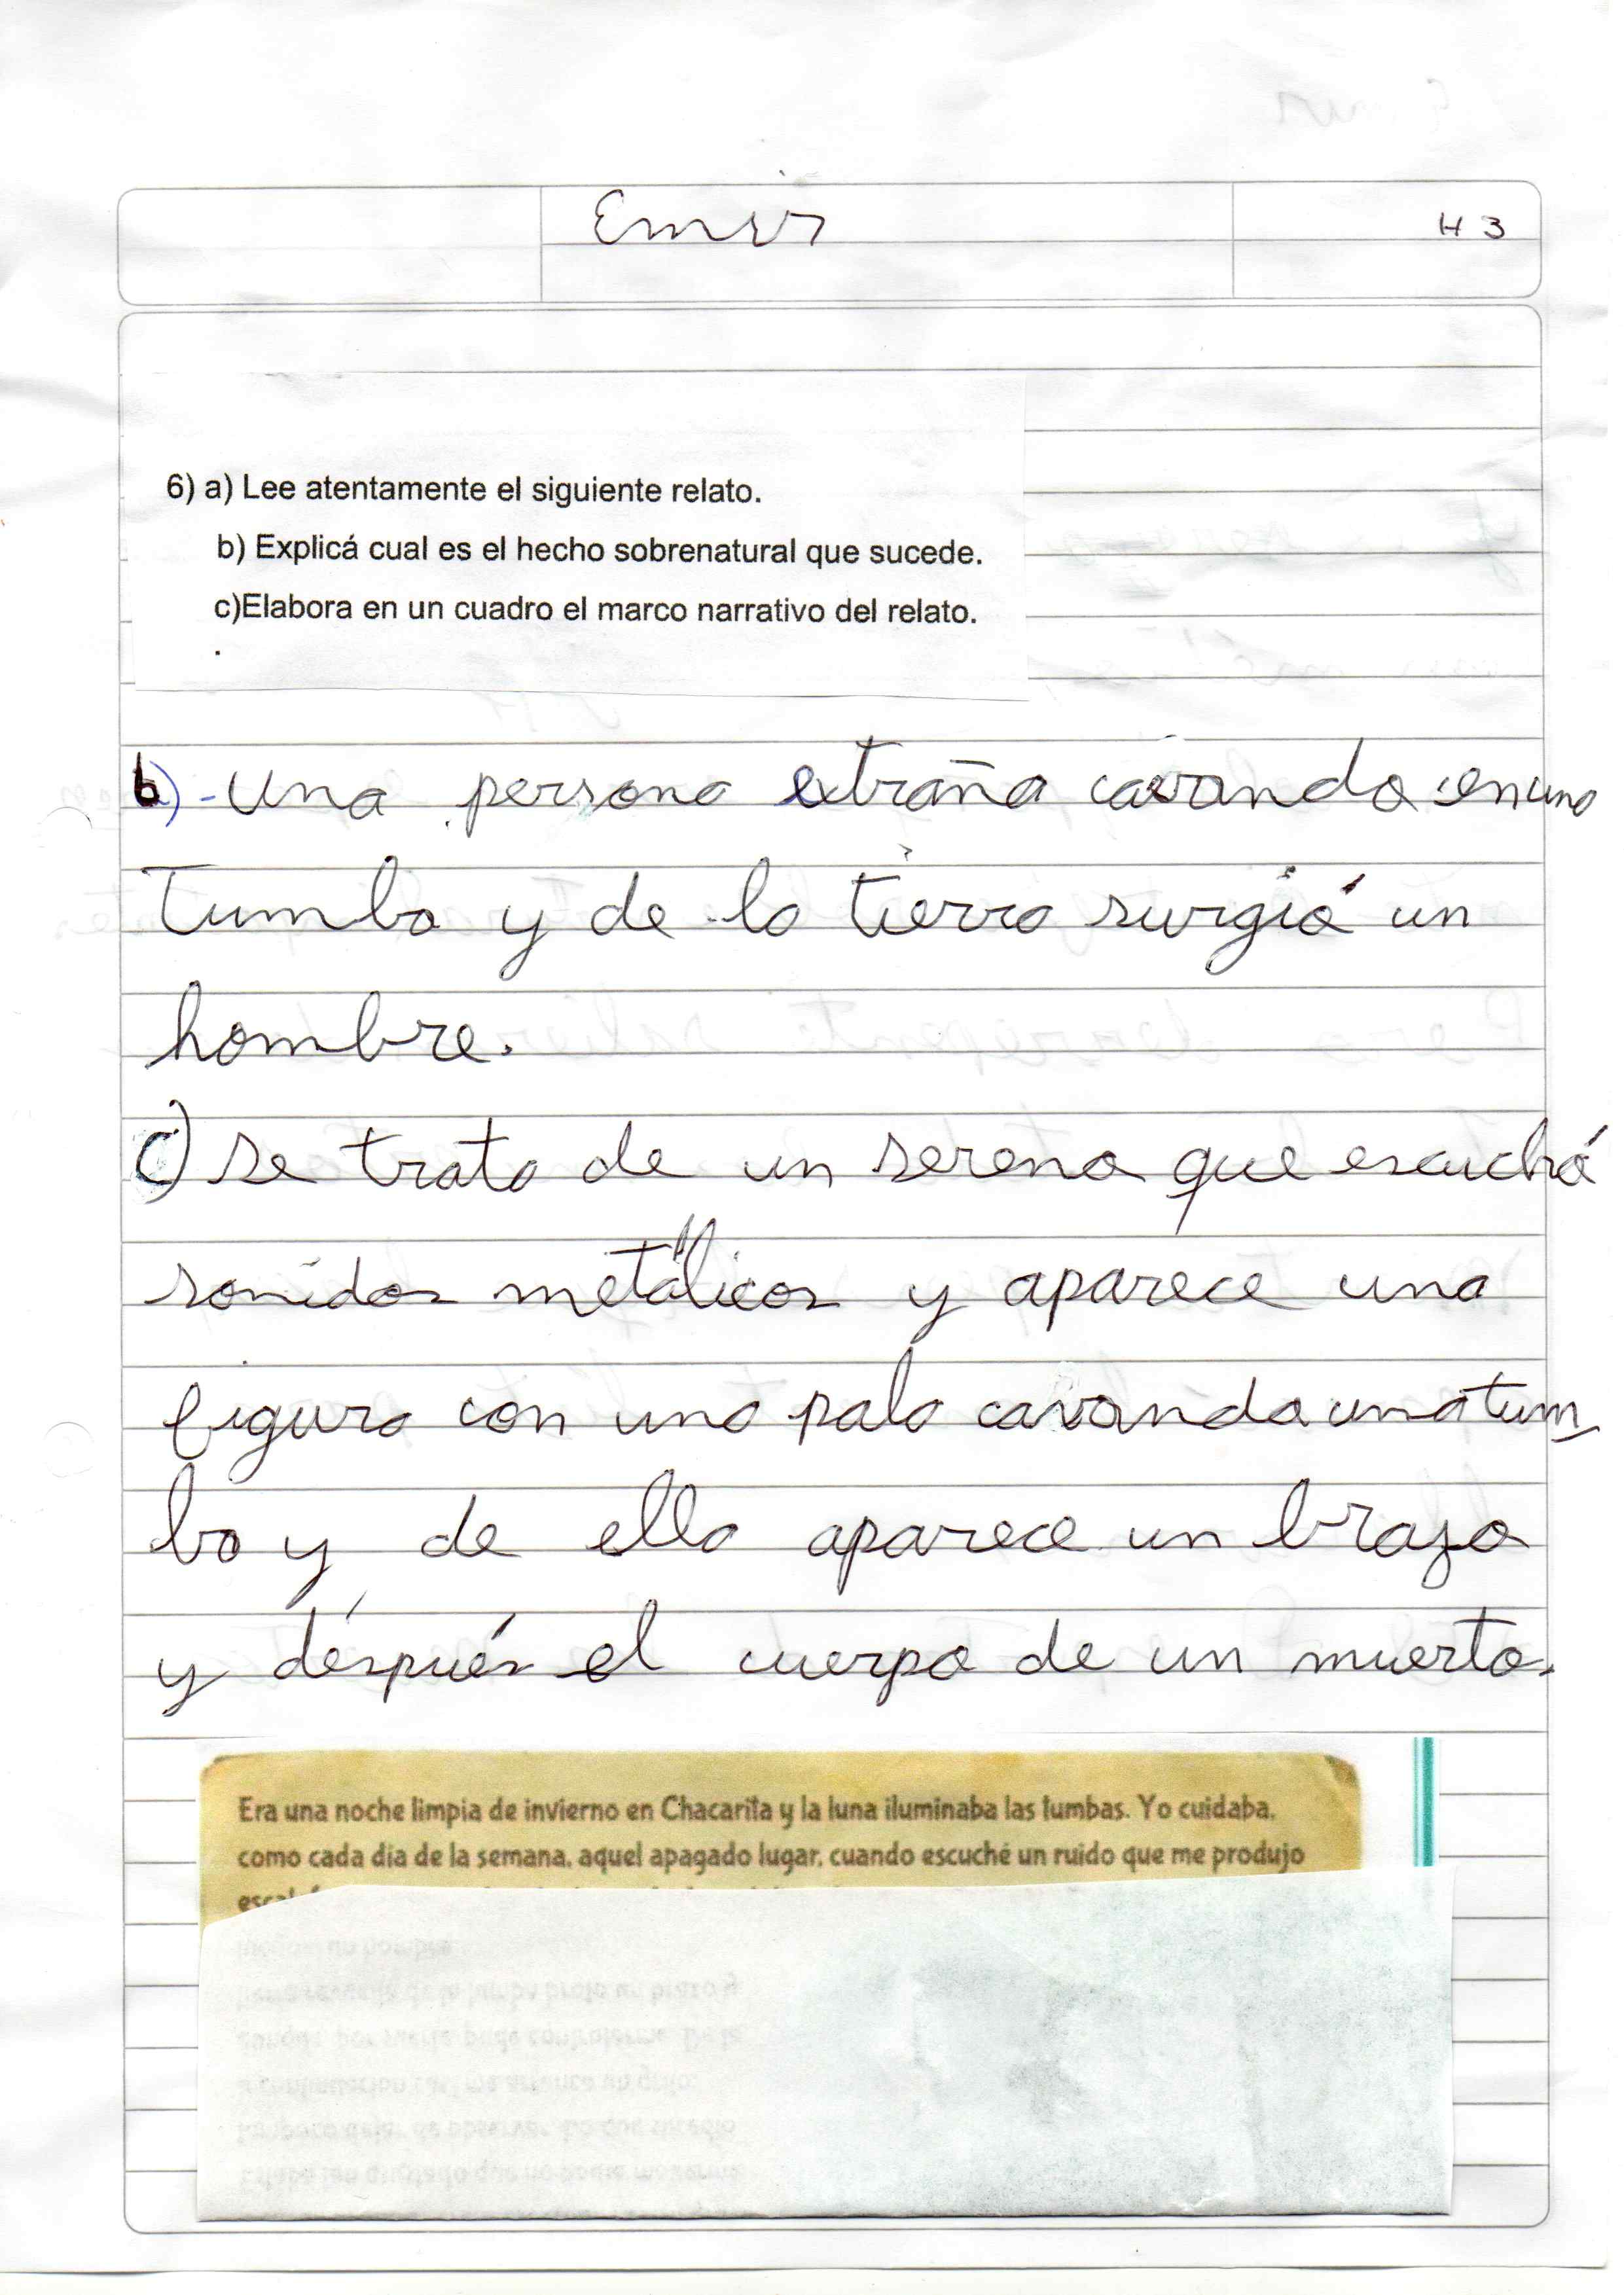 Emir
H 3
6) a) Lee atentamente el siguiente relato.
b) Explicá cual es el hecho sobrenatural que sucede.
c)Elabora en un cuadro el marco narrativo del relato.
.
b)- Una persona extraña cavando en una
Tumba y de la tierra surgió un
hombre.
c) se trata de un sereno que escuchó
sonidos metálicos y aparece una
figura con una pala cavando una tum_
ba y de ella aparece un brazo
y después el cuerpo de un muerto.
Era una noche limpia de invierno en Chacarita y la luna iluminaba las tumbas. Yo cuidaba,
como cada dia de la semana, aquel apagado lugar, cuando escuché un ruido que me produjo